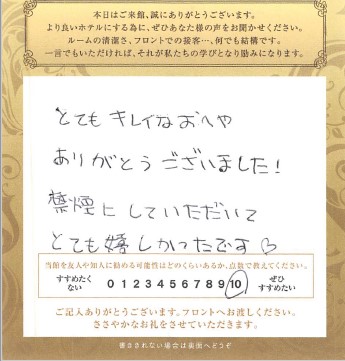 本日はご来館、誠にありがとうございます。
より良いホテルにする為に、ぜひあなた様の声をお聞かせください。
ルームの清潔さ、フロントでの接客…、何でも結構です。
一言でもいただければ、それが私たちの学びとなり励みになります。
とてもキレイなおへや
ありがとうございました!
禁煙にしていただいて
とても嬉しかったです♡
当館を友人や知人に勧める可能性はどのくらいあるか、点数で教えてください。
すすめたくない 0 1 2 3 4 5 6 7 8 9 10 ぜひすすめたい
ご記入ありがとうございます。フロントへお渡しください。
ささやかなお礼をさせていただきます。
書ききれない場合は裏面へどうぞ